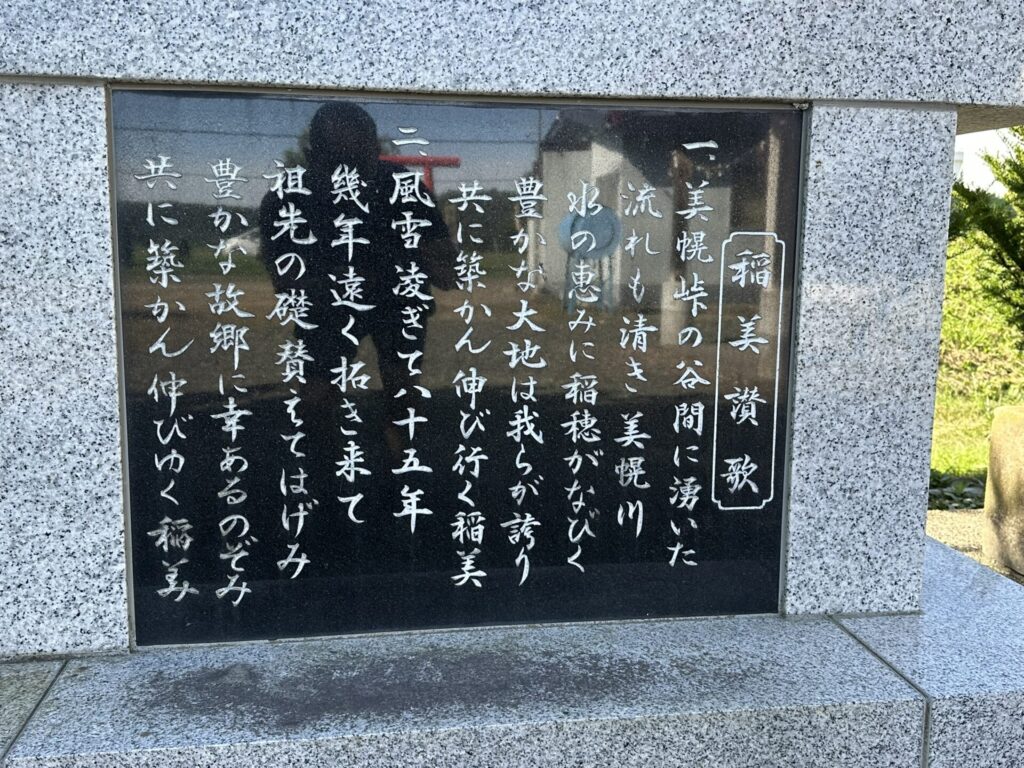 稲美讃歌
一、美幌峠の谷間に湧いた
流れも清き美幌川
水の恵みに稲穂がなびく
豊かな大地は我らが誇り
共に築かん伸び行く稲美
二、風雪凌ぎて八十五年
幾年遠く拓き来て
祖先の礎賛えてはげみ
豊かな故郷に幸あるのぞみ
共に築かん伸びゆく稲美